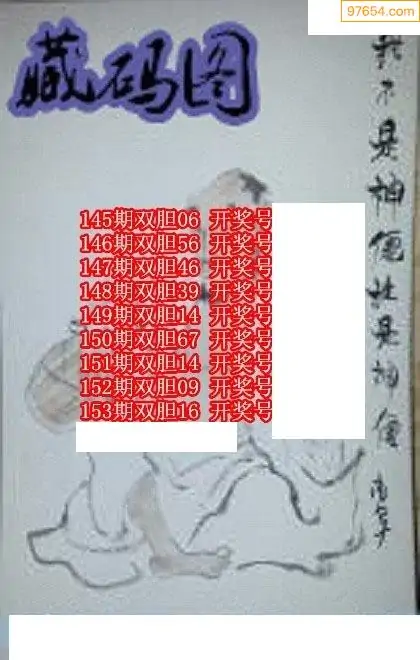 97654.com
藏码图
我不是神仙胜是神仙
145期双胆06 开奖号
146期双胆56 开奖号
147期双胆46 开奖号
148期双胆39 开奖号
149期双胆14 开奖号
150期双胆67 开奖号
151期双胆14 开奖号
152期双胆09 开奖号
153期双胆16 开奖号